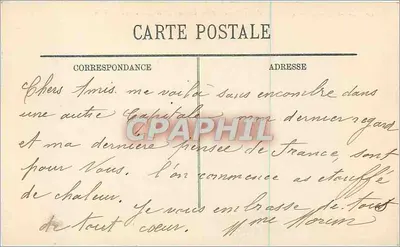 CARTE POSTALE
CORRESPONDANCE ADRESSE
Chers Amis me voilà sans encombre dans
une autre Capitale mon dernier regard
et ma dernière pensée de France, sont
pour Vous. l'on commence as etouffé
de chaleur. Je vous embrasse de tous
de tout cœur. Mme Morin
CPAPHIL